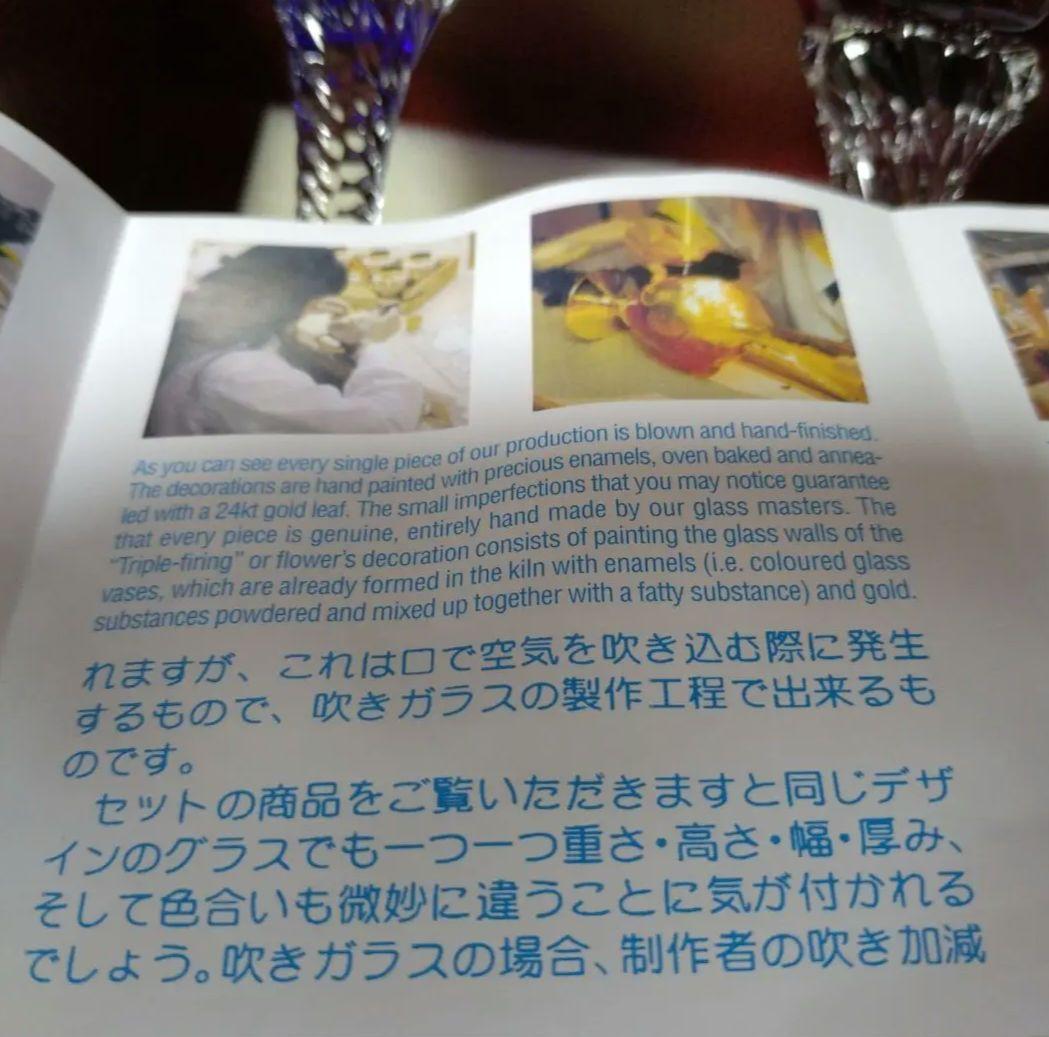 As you can see every single piece of our production is blown and hand-finished.
The decorations are hand painted with precious enamels, oven baked and annea-
led with a 24kt gold leaf. The small imperfections that you may notice guarantee
that every piece is genuine, entirely hand made by our glass masters. The
"Triple-firing" or flower's decoration consists of painting the glass walls of the
vases, which are already formed in the kiln with enamels (i.e. coloured glass
substances powdered and mixed up together with a fatty substance) and gold.
れますが、これは口で空気を吹き込む際に発生
するもので、吹きガラスの製作工程で出来るも
のです。
セットの商品をご覧いただきますと同じデザ
インのグラスでも一つ一つ重さ・高さ・幅・厚み、
そして色合いも微妙に違うことに気が付かれる
でしょう。吹きガラスの場合、制作者の吹き加減